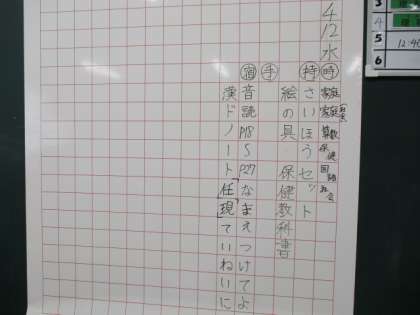 4/12 水
時 家庭 家庭 算数 保健 国語 社会
持 さいほうセット
絵の具・保健教科書
手
宿 音読P18〜P27なまえつけてよ
漢ドノート「任」「現」ていねいに
12:4